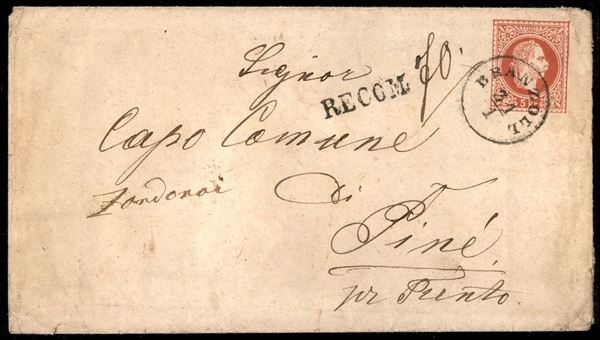 Signor
RECOM 70.
BRANZOLL
5
Capo Comune
Zandonai
di
Piné
pr Trento.